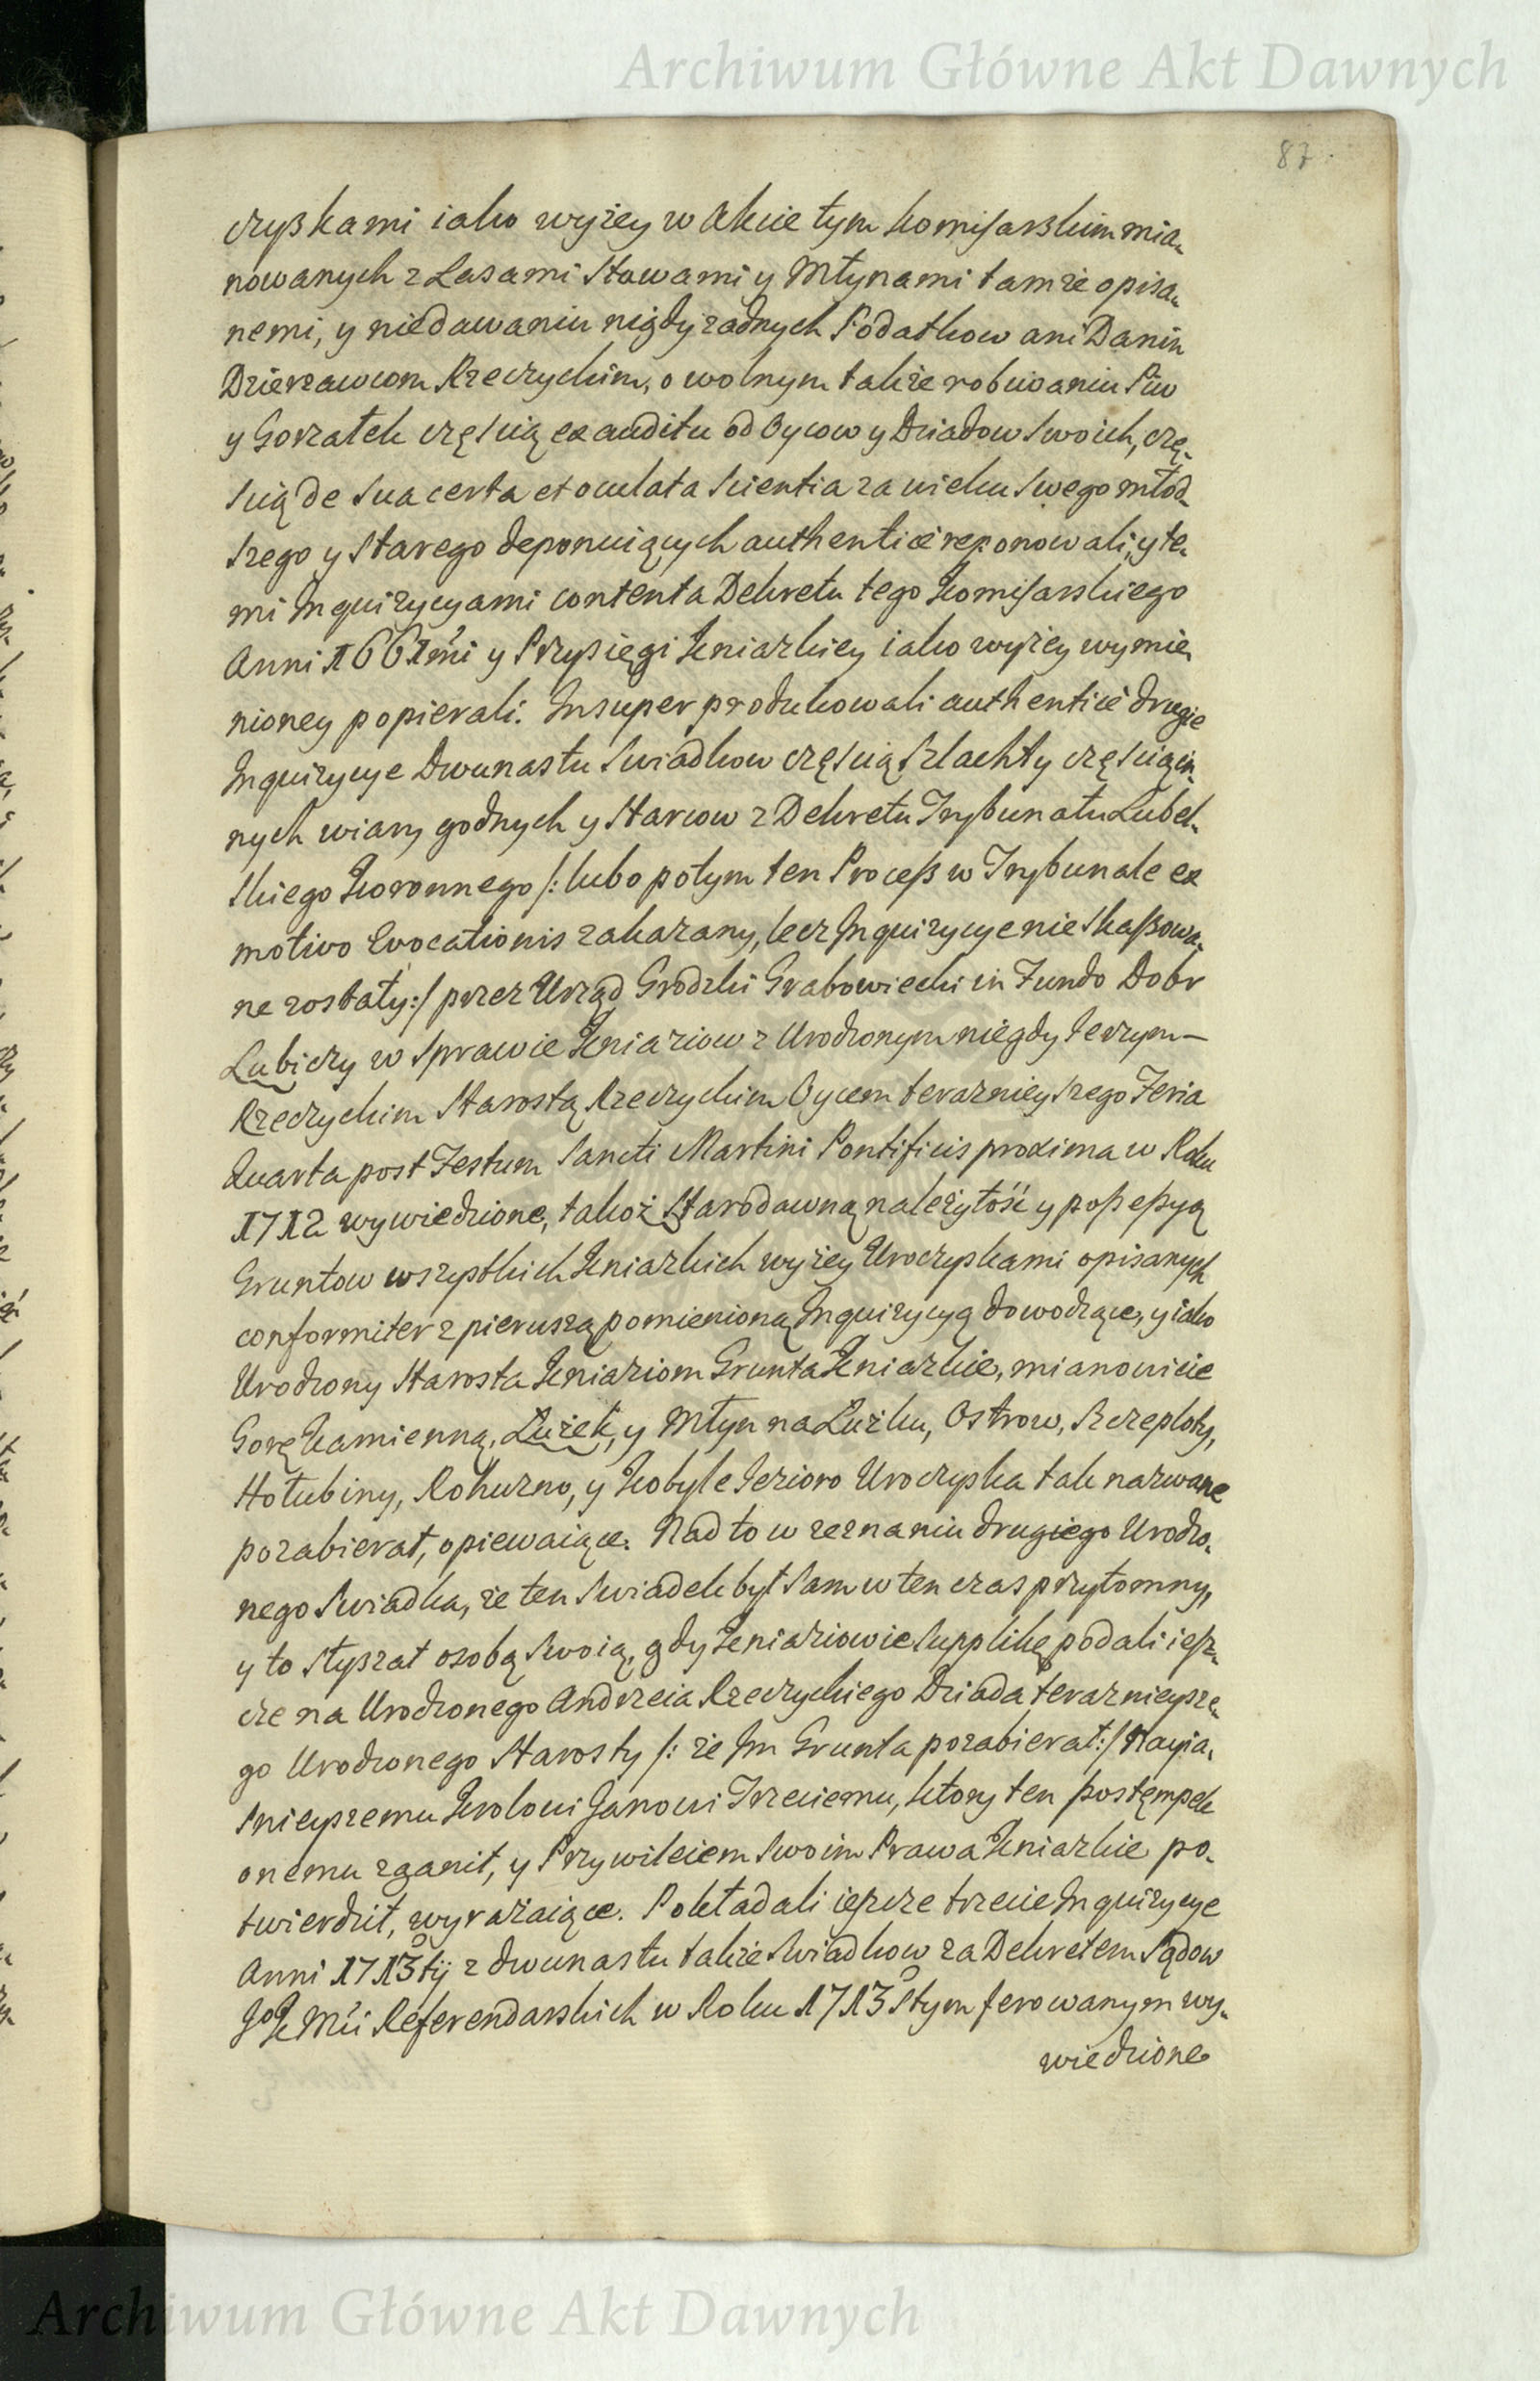 Archiwum Główne Akt Dawnych
87.
czyskami iako wyżey w Akcie tym Komissarskim mia„
nowanych z Lasami Stawami y Młynami tamże opisa„
nemi, y niedawaniu nigdy żadnych Podatkow ani Danin
Dzierżawcom Rzeczyckim, o wolnym także robieniu Piw
y Gorzałek częścią ex auditu od Oycow y Dziadow Swoich, czę„
scią de sua certa et oculata Scientia za wieku Swego młod„
szego y Starego deponuiących authenticè reponowali, y te„
mi Inquizycyami contenta Dekretu tego Komissarskiego
Anni 1661mi y Przysięgi Kniazkiey iako wyżey wymie„
nioney popierali. Insuper produkowali authenticè drugie
Inquizycye Dwunastu Swiadkow częścią Szlachty częścią in„
nych wiary godnych y Starcow z Dekretu Trybunału Lubel„
skiego Koronnego /: lubo potym ten Process w Trybunale ex
motivo Evocationis zakazany, lecz Inquizycye nie Skassowa„
ne zostały :/ przez Urząd Grodzki Grabowiecki in Fundo Dobr
Lubiczy w Sprawie Kniaziow z Urodzonym niegdy Jerzym —
Rzeczyckim Starostą Rzeczyckim Oycem teraznieyszego Feria
Quarta post Festum Sancti Martini Pontificis proxima w Roku
1712 wywiedzione, takoż Starodawną należytość y possessyą
Gruntow wszystkich Kniazkich wyżey Uroczyskami opisanych
conformiter z pierwszą pomienioną Inquizycyą dowodzące, y iako
Urodzony Starosta Kniaziom Grunta Kniazkie, mianowicie
Gorę Kamienną, Lużek, y Młyn na Lużku, Ostrow, Szczepłoty,
Hołubiny, Rohuzno, y Kobyle Jezioro Uroczyska tak nazwane
pozabierał, opiewaiące. Nad to w zeznaniu drugiego Urodzo„
nego Swiadka, że ten Swiadek był Sam w ten czas przytomny,
y to Słyszał osobą Swoią, gdy Kniaziowie Supplikę podali iesz„
cze na Urodzonego Andrzeia Rzeczyckiego Dziada teraznieysze„
go Urodzonego Starosty /: że Im Grunta pozabierał :/ Nayia„
snieyszemu Krolowi Janowi Trzeciemu, ktory ten postęmpek
onemu zganił, y Przywileiem Swoim Prawa Kniazkie po„
twierdził, wyrażaiące. Pokładali ieszcze trzecie Inquizycye
Anni 1713tij z dwunastu także Swiadkow za Dekretem Sądow
JoKMci Referendarskich w Roku 1713Stym ferowanym wy„
wiedzione
Archiwum Główne Akt Dawnych